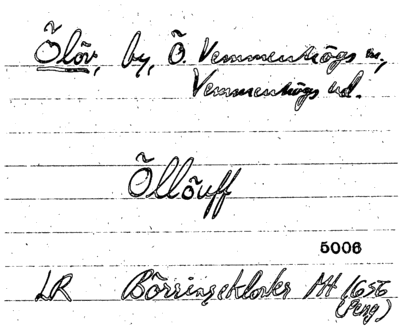 Õlöv, by, Ö. Vemmenhögs sn,
Vemmenhögs hd.
Õllöuff
5006
LR Börringekloster AH 1656
(Peng)